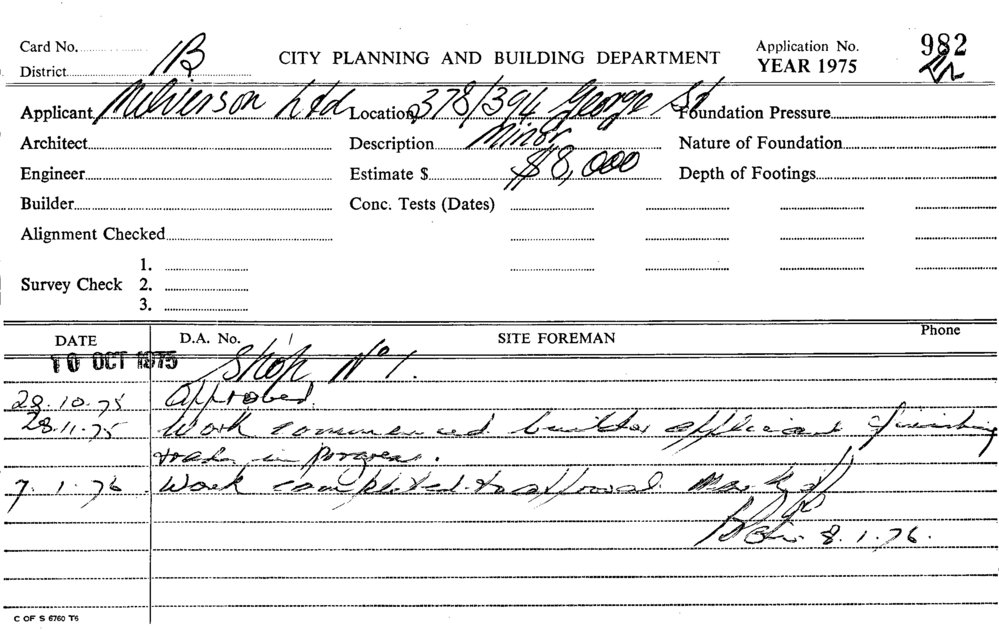 Card No. 1B CITY PLANNING AND BUILDING DEPARTMENT Application No. 982
District YEAR 1975
Applicant Ltd Location 378/394 George St Foundation Pressure
Architect Description Minor Nature of Foundation
Engineer Estimate $ $8,000 Depth of Footings
Builder Conc. Tests (Dates)
Alignment Checked
1.
Survey Check 2.
3.
DATE D.A. No. SITE FOREMAN Phone
10 OCT 1975 Shop No 1.
28.10.75 Approved.
28.11.75 Work commenced builder applicant finishing
trades in porgress.
7.1.76 Work completed to approval. Mark off
8.1.76.
C OF S 6760 T6